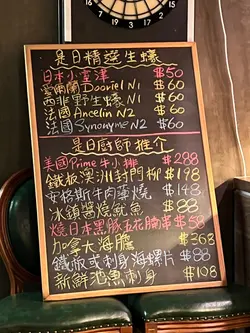 是日精選生蠔
日本小宮津 $50
愛爾蘭 Dooriel N1 $60
西非野生蠔 N1 $60
法國 Ancelin N2 $60
法國 Synonyme N2 $60
是日廚師推介
美國Prime牛小排 $288
鐵板澳洲封門柳 $198
安格斯牛肉薄燒 $148
冰鎮醬燒魷魚 $88
燒日本黑豚五花腩串 $58
加拿大海膽 $368
鐵板或刺身海螺片 $88
新鮮池魚刺身 $108